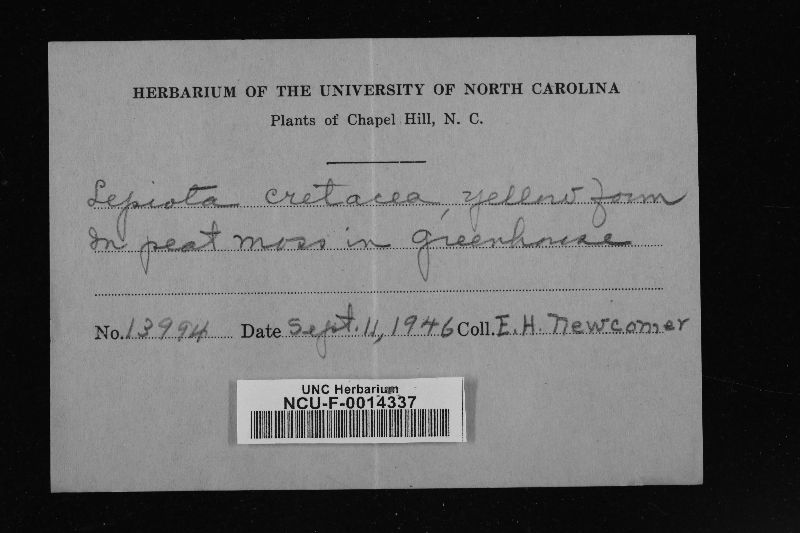 HERBARIUM OF THE UNIVERSITY OF NORTH CAROLINA
Plants of Chapel Hill, N. C.
Lepiota cretacea, yellow form
In peat moss in greenhouse
No. 13994 Date Sept. 11, 1946 Coll. E. H. Newcomer
UNC Herbarium
NCU-F-0014337